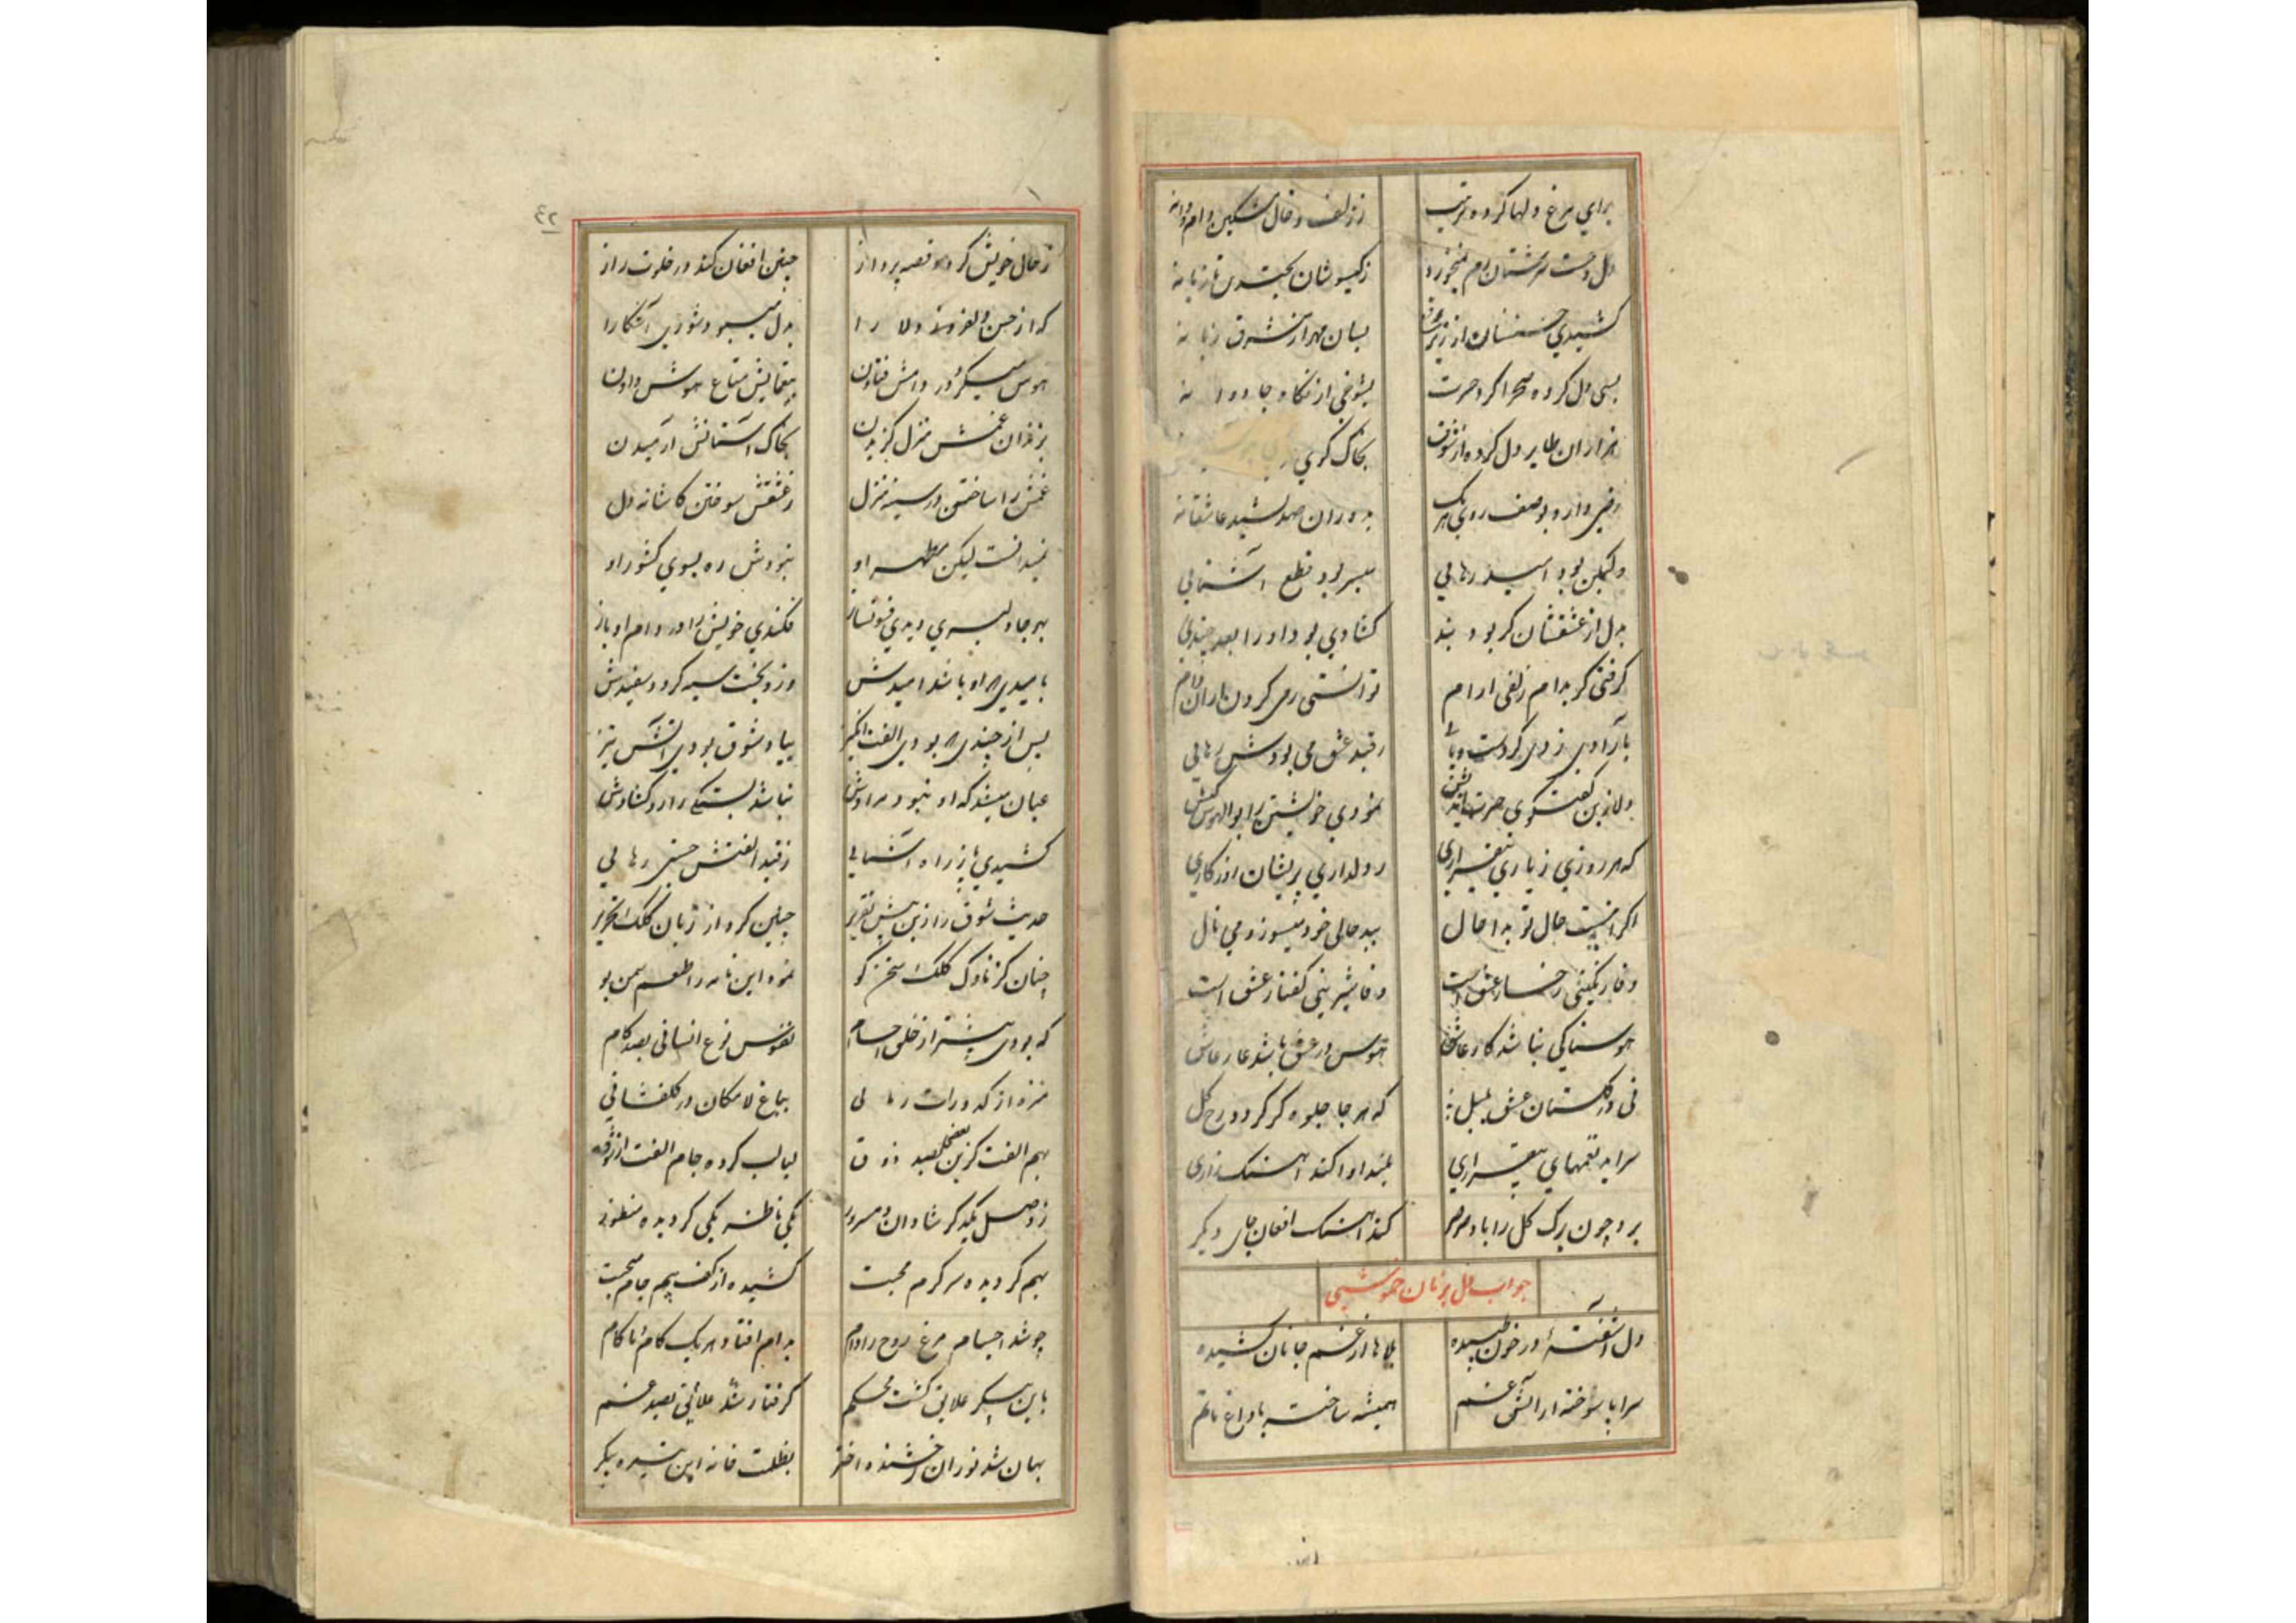 برای مرغ دلها کرده ترتیب ز زلف و خال مشکین دام و دانه
دل وحشت سرشتان رم نمیخورد ز کیسوشان بجستن تازیانه
کشیدی حسنشان از زیر برقع بسان مهر از مشرق زبانه
بسی دل کرده صحرا کرد حسرت بشوخی از نکاه جادوانه
هزاران طایر دل کرده از شوق بخاک کوی
رخی واره بوصف روی هر یک بدوران صد نشید عاشقانه
ولیکن بود امید رهایی میسر بود قطع آشنایی
بدل از عشقشان کر بود بند کشادی بود او را بعد چندی
کرفتی کر بدام زلفی آرام توانستی رمی کردن از آن دام
بآزادی زدی کر دست و پایی ز قید عشق می بودش رهایی
دلا زین کفتکوی حسرت نمودی خویشتن را بوالهوس کیش
که هر روزی ز یاری بیقراری ز دلداری پریشان روزکاری
اکر اینست حال تو بد احوال ببد حالی خود میسوز و می نال
وفا رنکینی رخسار عشق است وفا شیرینی کفتار عشق است
هوسناکی نباشد کار عاشق هوس در عشق باشد عار عاشق
نی در کلستان عشق بلبل که هر جا جلوه کر کردد رخ کل
سراید نغمهای بیقراری بلند آوا کند آهنک زاری
برد چون برک کل را باد صرصر کند آهنک افغان جای دیکر
جواب دل بزبان خموشی
دل آشفتهٔ در خون طپیده بلاها از غم جانان کشیده
سراپا سوخته از آتش غم همیشه ساخته با داغ ماتم
٤٢
ز حال خویش کردد قصه پرداز چنین افغان کند در خلوت راز
که از حسن دلفروز دلارا بدل میبود شوری آشکارا
هوس میکرد در دامش فتادن بیغمایش متاع هوش دادن
بزندان غمش منزل کزیدن بخاک آستانش آرمیدن
غمش را ساختن در سینه منزل ز عشقش سوختن کاشانه دل
نمیدانست لیکن مظهر او نبودش ره بسوی کشور او
بهر جا دلبری دیدی فسونساز فکندی خویش را در دام او باز
بامیدی که او باشد امیدش وزو بخت سیه کردد سفیدش
پس از چندی که بودی الفت انکیز بیاد شوق بودی آتش تیز
عیان میشد که او نبود مرادش نباشد بستکی را زو کشادش
کشیدی پا ز راه آشنایی ز قید الفتش جستی رهایی
حدیث شوق را زین پیش تقریر چنین کرد از زبان کلک تحریر
چنان کز ناوک کلک سخن کو نمود این نامه را طعم سمن بو
که بودی پیشتر از خلق اجسام نفوس نوع انسانی بصد کام
منزه از کدورات رهایی بباغ لامکان در کلفشانی
بهم الفت کزین بصد ذوق لبالب کرده جام الفت از شوق
ز وصل یکدکر شادان و مسرور یکی ناظر یکی کردیده منظور
بهم کردیده سرکرم محبت کشیده از کف هم جام صحبت
چو شد اجسام مرغ روح را دام بدام افتاد هر یک کام و ناکام
باین پیکر علایق کشت محکم کرفتار علایق شد بصد غم
نهان شد نور آن رخشنده اختر بظلمت خانه این تیره پیکر